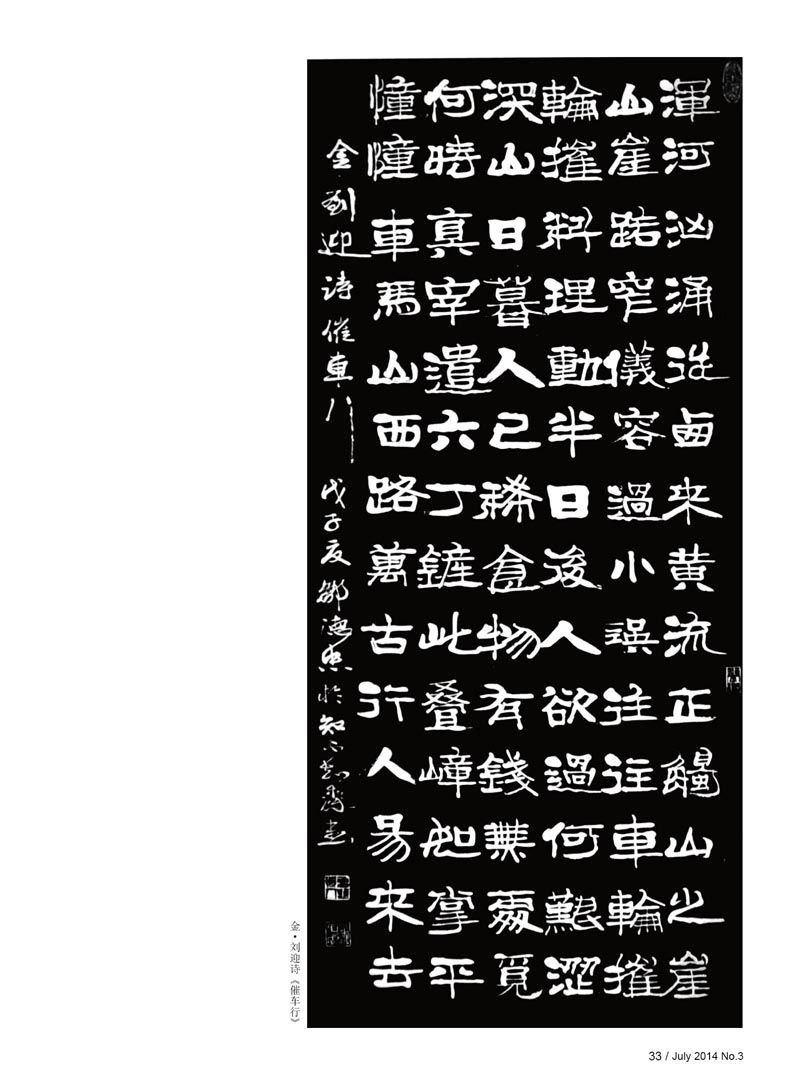 渾河汹涌從鹵來黄流正齧山之崖
山崖路窄僅容過小誤往往車輪摧
輪摧料理動半日後人欲過何艱澀
深山日暮人已稀食物有錢無處覓
何時真宰遣六丁鏟此叠嶂如掌平
憧憧車馬山西路萬古行人易來去
金劉迎詩催車行 戊子夏鄒德忠於知不齋書
金·刘迎诗《催车行》
33 / July 2014 No.3